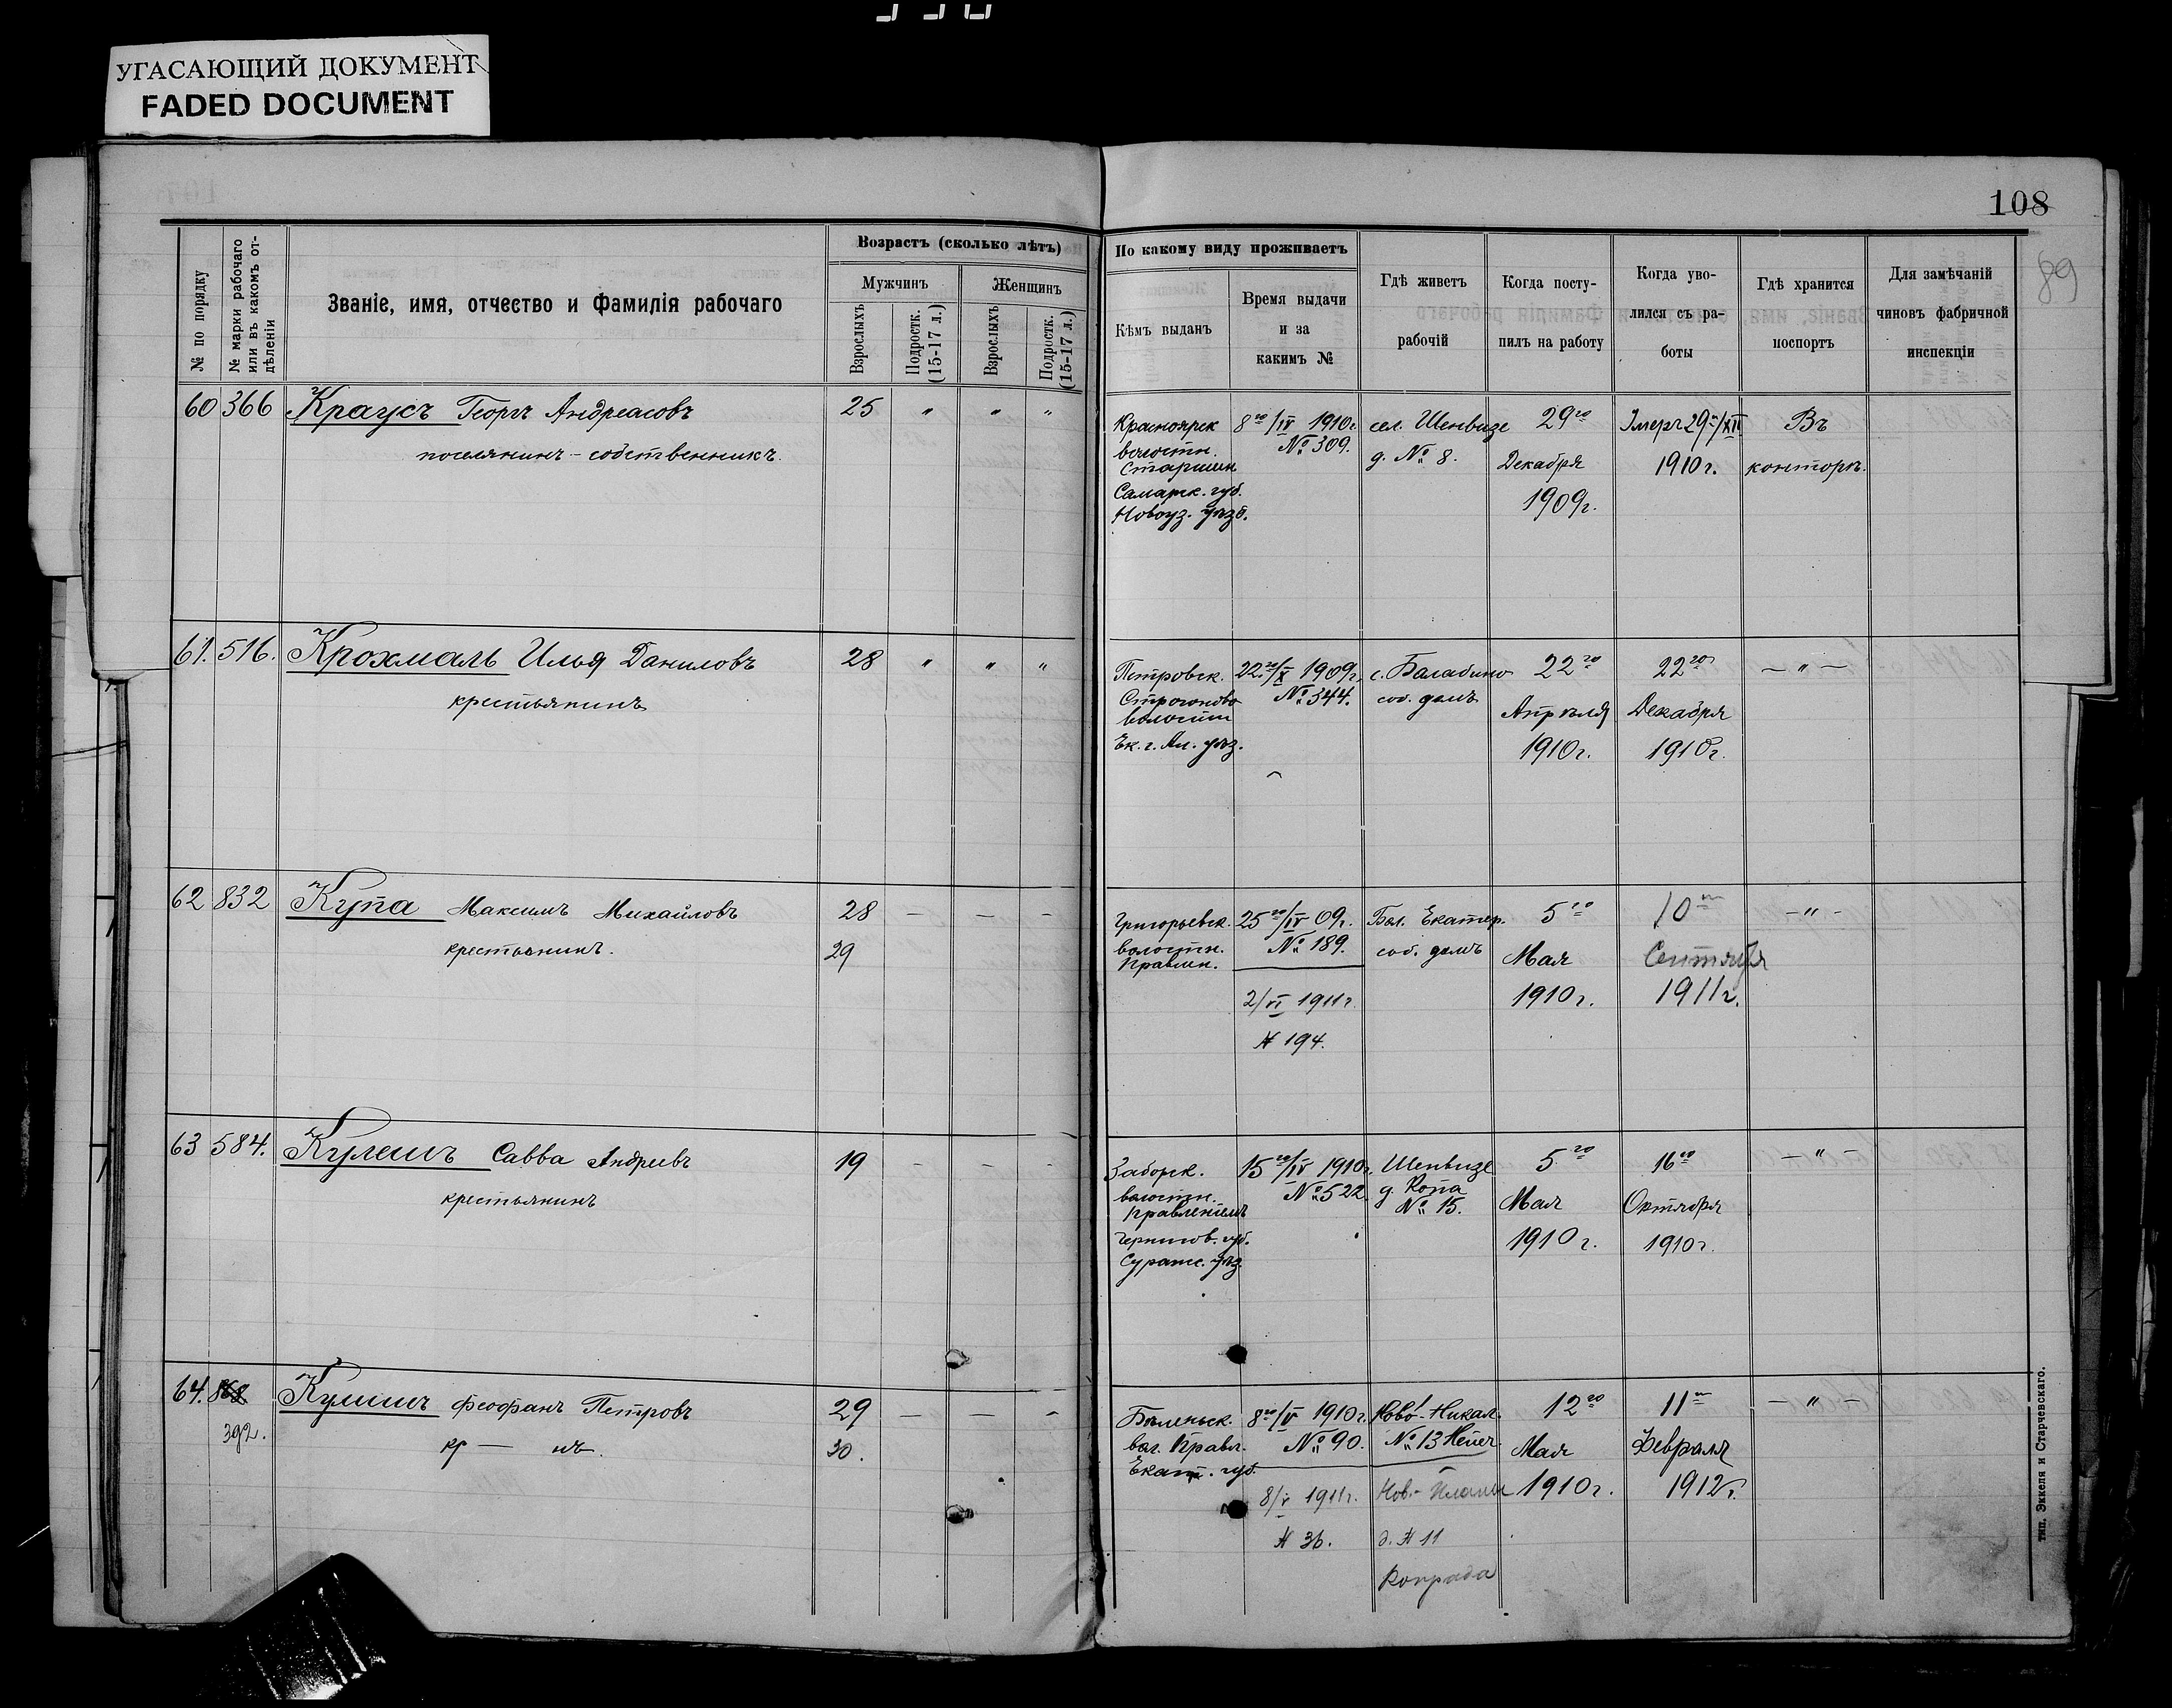 УГАСАЮЩИЙ ДОКУМЕНТ
FADED DOCUMENT
108
89
№ по порядку
№ марки рабочаго или въ какомъ отдѣленіи
Званіе, имя, отчество и фамилія рабочаго
Возрастъ (сколько лѣтъ)
Мужчинъ
Женщинъ
Взрослыхъ
Подростк. (15-17 л.)
Взрослыхъ
Подростк. (15-17 л.)
По какому виду проживаетъ
Кѣмъ выданъ
Время выдачи и за какимъ №
Гдѣ живетъ рабочій
Когда поступилъ на работу
Когда уволился съ работы
Гдѣ хранится поспортъ
Для замѣчаній чиновъ фабричной инспекціи
60 366 Краусъ Георгъ Андреасовъ 25 " " "
поселянинъ - собственникъ.
Красноярск волостн. Старшин Самарск. губ. Новоуз. уѣзд.
8го/IV 1910г. № 309.
сел. Шенвизе д. № 8.
29го Декабря 1909г.
Умеръ 29го/XII 1910г.
Въ конторѣ.
61. 516. Крохмаль Илья Даниловъ 28 " " "
крестьянинъ
Петровск. волости Ек. г. Ал. уѣз.
22го/X 1909г. № 344.
с. Балабино соб. домъ
22го Апрѣля 1910г.
22го Декабря 1910г.
— " —
62 832 Купа Максимъ Михайловъ 28 — — —
крестьянинъ. 29
Григорьевск. волостн. Правлен.
25го/IV 09г. № 189.
2/VI 1911г.
№ 194.
Бал. Екатер. соб. домъ
5го Мая 1910г.
10го Сентября 1911г.
— " —
63 584. Кулешъ Савва Андреевъ 19 — — —
крестьянинъ
Заборск. волостн. Правленіемъ Чернигов. губ. Сураж. уѣз.
15го/IV 1910г. № 522.
Шенвизе д. Копа № 15.
5го Мая 1910г.
16го Октября 1910г.
— " —
64. 868 Кулишъ Феофанъ Петровъ 29 — — —
392. кр — нъ. 30.
Бѣленьск. вол. Правл. Екат. губ.
8го/V 1910г. № 90.
8/V 1911г.
№ 36.
Ново-Никол. № 13
Нов.- д. № 11
Конрада
12го Мая 1910г.
11го Февраля 1912г.
— " —
тип. Эккеля и Старчевскаго.